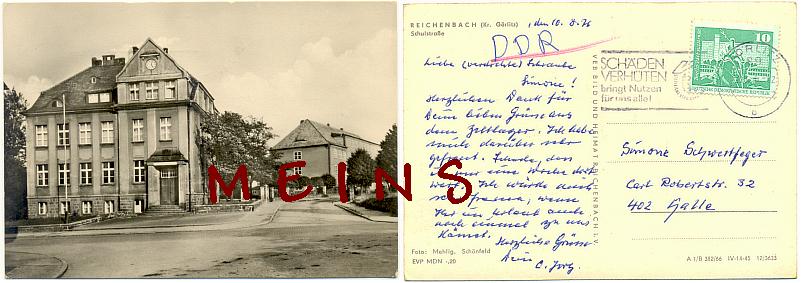 MEINS
REICHENBACH (Kr. Görlitz)
Schulstraße
, den 10. 8. 76
DDR
Liebe (verdrehte) Schraube
Simone!
Herzlichen Dank für
Deine lieben Grüße aus
dem Zeltlager. Ich habe
mich darüber sehr
gefreut. Schade, daß
es nur eine Woche
war. Ich würde mich
freuen, wenn
Du im Urlaub auch
noch einmal zu uns
kämst.
Herzliche Grüße
Dein
SCHÄDEN
VERHÜTEN
bringt Nutzen
für uns alle!
GÖRLITZ
10
DEUTSCHE DEMOKRATISCHE REPUBLIK
VEB BILD UND HEIMAT REICHENBACH I. V.
Simone Schwertfeger
Carl Robertstr. 32
402 Halle
Foto: Mehlig, Schönfeld
EVP MDN -,20
A 1/B 382/66 IV-14-45 12/3635